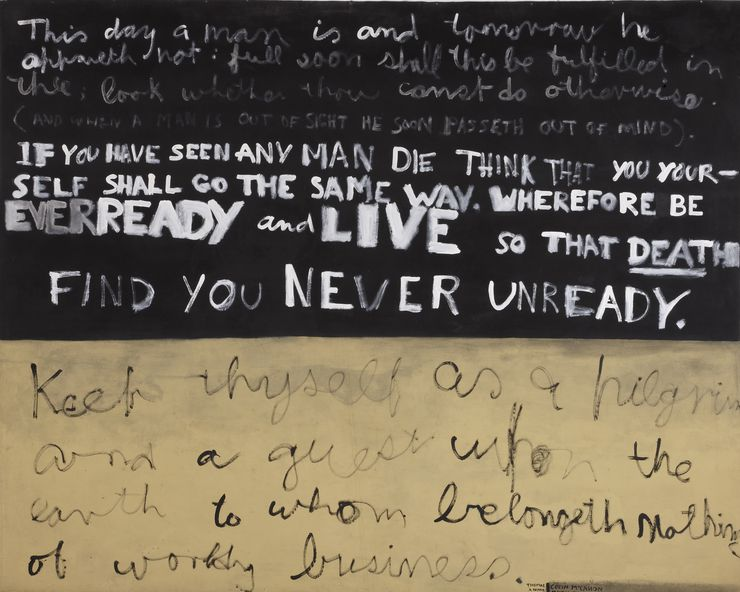 This day a man is and tomorrow he
appeareth not: full soon shall this be fulfilled in
thee; look whether thou canst do otherwise.
(AND WHEN A MAN IS OUT OF SIGHT HE SOON PASSETH OUT OF MIND).
IF YOU HAVE SEEN ANY MAN DIE THINK THAT YOU YOUR-
SELF SHALL GO THE SAME WAY. WHEREFORE BE
EVER READY and LIVE SO THAT DEATH
FIND YOU NEVER UNREADY.
Keep thyself as a pilgrim
and a guest upon the
earth to whom belongeth nothing
of worldly business.
THOMAS
COLIN McCAHON